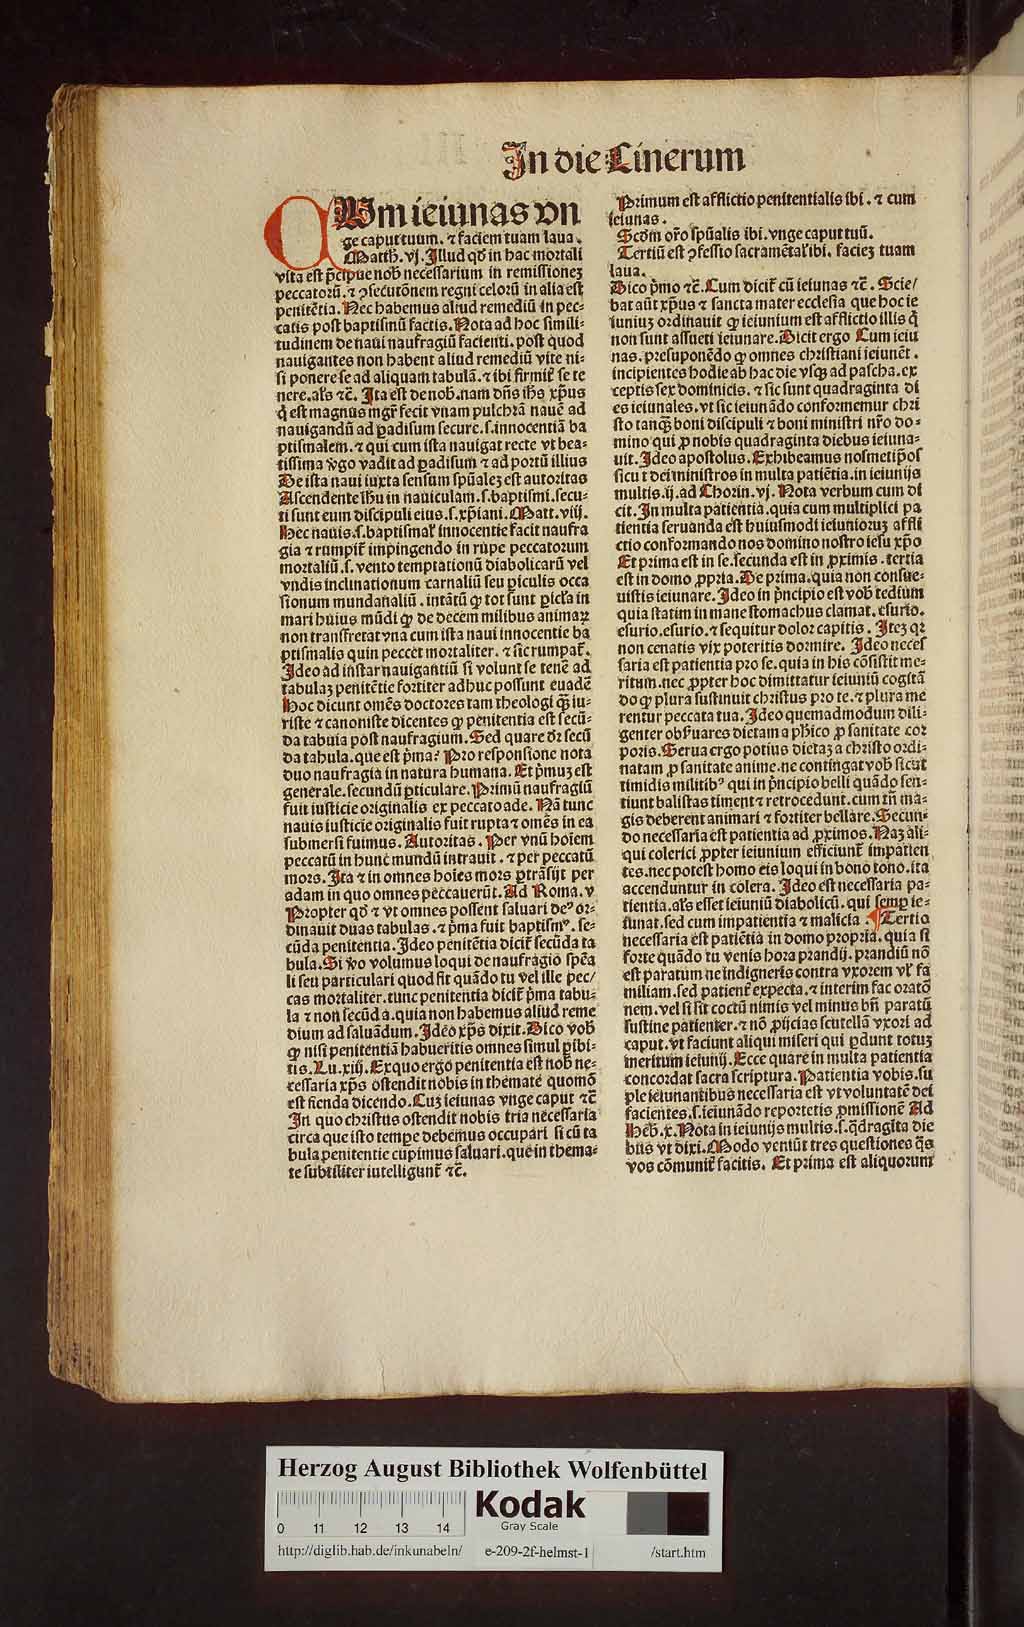 In die Cinerum
CUm ieiunas vn
ge caput tuum. ⁊ faciem tuam laua.
Matth. vj. Illud qd̄ in hac mortali
vita est p̄cipue nob̄ necessarium in remissionez
peccatorū. ⁊ ꝯsecutōnem regni celorū in alia est
penitētia. Nec habemus aliud remediū in pec⸗
catis post baptismū factis. Nota ad hoc simili⸗
tudinem de naui naufragiū facienti. post quod
nauigantes non habent aliud remediū vite ni⸗
si ponere se ad aliquam tabulā. ⁊ ibi firmit̄ se te
nere. al̄s ⁊c̄. Ita est de nob̄. nam dn̄s ih̄s xp̄us
q̄ est magnus mgr̄ fecit vnam pulchrā nauē ad
nauigandū ad ꝑadisum secure. s. innocentiā ba
ptismalem. ⁊ qui cum ista nauigat recte vt bea⸗
tissima v̄go vadit ad ꝑadisum ⁊ ad portū illius
De ista naui iuxta sensum spūalez est autoritas
Ascendente ih̄u in nauiculam. s. baptismi. secu⸗
ti sunt eum discipuli eius. s. xp̄iani. Matt. viij.
Hec nauis. s. baptismal̄ innocentie facit naufra
gia ⁊ rumpit̄ impingendo in rupe peccatorum
mortaliū. s. vento temptationū diabolicarū vel
vndis inclinationum carnaliū seu ꝑiculis occa
sionum mundanaliū. intātū ꝙ tot sunt ꝑicl̄a in
mari huius mūdi ꝙ de decem milibus animaꝝ
non transfretat vna cum ista naui innocentie ba
ptismalis quin peccet mortaliter. ⁊ sic rumpat̄.
Ideo ad instar nauigantiū si volunt se tenē ad
tabulaz penitētie fortiter adhuc possunt euadē
Hoc dicunt omēs doctores tam theologi q̄ iu⸗
riste ⁊ canoniste dicentes ꝙ penitentia est secū⸗
da tabula post naufragium. Sed quare dr̄ secū
da tabula. que est p̄ma? Pro responsione nota
duo naufragia in natura humana. Et p̄muz est
generale. secundū ꝑticulare. Primū naufragiū
fuit iusticie originalis ex peccato ade. Nā tunc
nauis iusticie originalis fuit rupta ⁊ omēs in ea
submersi fuimus. Autoritas. Per vnū hoīem
peccatū in hunc mundū intrauit. ⁊ per peccatū
mors. Ita ⁊ in omnes hoīes mors ꝑtrāsijt per
adam in quo omnes peccauerūt. Ad Roma. v
Propter qd̄ ⁊ vt omnes possent saluari deꝰ or⸗
dinauit duas tabulas. ⁊ p̄ma fuit baptismꝰ. se⸗
cūda penitentia. Ideo penitētia dicit̄ secūda ta
bula. Si v̄o volumus loqui de naufragio spēa
li seu particulari quod fit quādo tu vel ille pec/
cas mortaliter. tunc penitentia dicit̄ p̄ma tabu⸗
la ⁊ non secūda. quia non habemus aliud reme
dium ad saluādum. Ideo xp̄s dixit. Dico vob̄
ꝙ nisi penitentiā habueritis omnes simul ꝑibi⸗
tis. Lu. xiij. Ex quo ergo penitentia est nob̄ ne⸗
cessaria xp̄s ostendit nobis in themate quomō
est fienda dicendo. Cuz ieiunas vnge caput ⁊c̄
In quo christus ostendit nobis tria necessaria
circa que isto tempe debemus occupari si cū ta
bula penitentie cupimus saluari. que in thema⸗
te subtiliter iutelligunt̄ ⁊c̄.
Primum est afflictio penitentialis ibi. ⁊ cum
ieiunas.
Scdm̄ or̄o spūalis ibi. vnge caput tuū.
Tertiū est ꝯfessio sacramētal̄ ibi. faciez tuam
laua.
Dico p̄mo ⁊c̄. Cum dicit̄ cū ieiunas ⁊c̄. Scie/
bat aūt xp̄us ⁊ sancta mater ecclesia que hoc ie
iuniuz ordinauit ꝙ ieiunium est afflictio illis q̄
non sunt assueti ieiunare. Dicit ergo Cum ieiu
nas. presuponēdo ꝙ omnes christiani ieiunēt.
incipientes hodie ab hac die vsq̄ ad pascha. ex
ceptis sex dominicis. ⁊ sic sunt quadraginta di
es ieiunales. vt sic ieiunādo conformemur chri
sto tanq̄ boni discipuli ⁊ boni ministri nr̄o do⸗
mino qui ꝓ nobis quadraginta diebus ieiuna⸗
uit. Ideo apostolus. Exhibeamus nosmetip̄os
sicut dei ministros in multa patiētia. in ieiunijs
multis. ij. ad Chorin. vj. Nota verbum cum di
cit. In multa patientia. quia cum multiplici pa
tientia seruanda est huiusmodi ieiunioruz affli
ctio conformando nos domino nostro iesu xp̄o
Et prima est in se. secunda est in ꝓximis. tertia
est in domo ꝓpria. De prima. quia non consue⸗
uistis ieiunare. Ideo in p̄ncipio est vob̄ tedium
quia statim in mane stomachus clamat. esurio.
esurio. esurio. ⁊ sequitur dolor capitis. Itez qꝛ
non cenatis vix poteritis dormire. Ideo neces
saria est patientia pro se. quia in his cōsistit me⸗
ritum. nec ꝓpter hoc dimittatur ieiuniū cogitā
do ꝙ plura sustinuit christus pro te. ⁊ plura me
rentur peccata tua. Ideo quemadmodum dili⸗
genter obs̄uares dietam a ph̄ico ꝓ sanitate cor
poris. Serua ergo potius dietaz a christo ordi⸗
natam ꝓ sanitate anime. ne contingat vob̄ sicut
timidis militibꝰ qui in p̄ncipio belli quādo sen⸗
tiunt balistas timent ⁊ retrocedunt. cum tn̄ ma⸗
gis deberent animari ⁊ fortiter bellare. Secun⸗
do necessaria est patientia ad ꝓximos. Naz ali⸗
qui colerici ꝓpter ieiunium efficiunt̄ impatien
tes. nec potest homo eis loqui in bono tono. ita
accenduntur in colera. Ideo est necessaria pa⸗
tientia. al̄s esset ieiuniū diabolicū. qui semꝑ ie⸗
iunat. sed cum impatientia ⁊ malicia. ¶Tertio
necessaria est patiētia in domo propria. quia si
forte quādo tu venis hora prandij. prandiū nō
est paratum ne indigneris contra vxorem vl̄ fa
miliam. sed patient̄ expecta. ⁊ interim fac oratō
nem. vel si sit coctū nimis vel minus bn̄ paratū
sustine patienter. ⁊ nō ꝓijcias scutellā vxori ad
caput. vt faciunt aliqui miseri qui ꝑdunt totuz
meritum ieiunij. Ecce quare in multa patientia
concordat sacra scriptura. Patientia vobis. su
ple ieiunantibus necessaria est vt voluntatē dei
facientes. s. ieiunādo reportetis ꝓmissionē Ad
Heb̄. x. Nota in ieiunijs multis. s. q̄dragīta die
bus vt dixi. Modo veniūt tres questiones q̄s
vos cōmunit̄ facitis. Et prima est aliquorum
Herzog August Bibliothek Wolfenbüttel
0 11 12 13 14
Kodak
Gray Scale
http://diglib.hab.de/inkunabeln/ e-209-2f-helmst-1 /start.htm